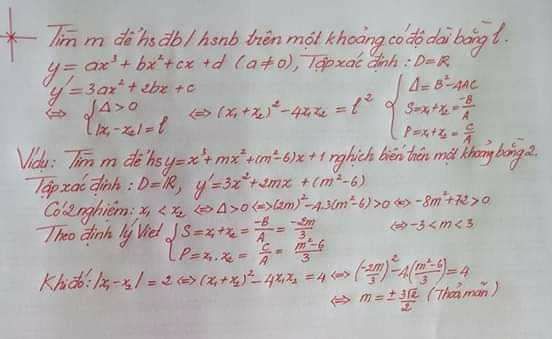 Tìm m để hsđb / hsnb trên một khoảng có độ dài bằng l.
y = ax³ + bx² + cx + d (a ≠ 0), Tập xác định : D = ℝ
y' = 3ax² + 2bx + c
⇔ { Δ > 0 ; |x₁ - x₂| = l ⇔ (x₁ + x₂)² - 4x₁x₂ = l² { Δ = B² - 4AC ; S = x₁ + x₂ = -B/A ; P = x₁ + x₂ = C/A
Ví dụ : Tìm m để hs y = x³ + mx² + (m² - 6)x + 1 nghịch biến trên một khoảng bằng 2.
Tập xác định : D = ℝ, y' = 3x² + 2mx + (m² - 6)
Có 2 nghiệm : x₁ < x₂ ⇔ Δ > 0 ⇔ (2m)² - 4.3(m² - 6) > 0 ⇔ -8m² + 72 > 0
⇔ -3 < m < 3
Theo định lý Viet { S = x₁ + x₂ = -B/A = -2m/3 ; P = x₁ . x₂ = C/A = m² - 6/3
Khi đó : |x₁ - x₂| = 2 ⇔ (x₁ + x₂)² - 4x₁x₂ = 4 ⇔ (-2m/3)² - 4(m² - 6/3) = 4
⇔ m = ± 3√2/2 (Thoả mãn)